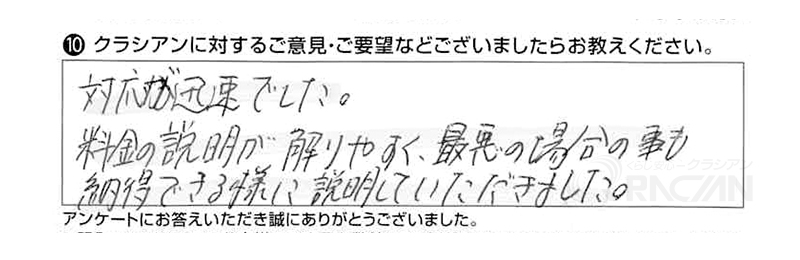 ❿ クラシアンに対するご意見・ご要望などございましたらお教えください。
対応が迅速でした。
料金の説明が解りやすく、最悪の場合の事も
納得できる様に説明していただきました。
アンケートにお答えいただき誠にありがとうございました。